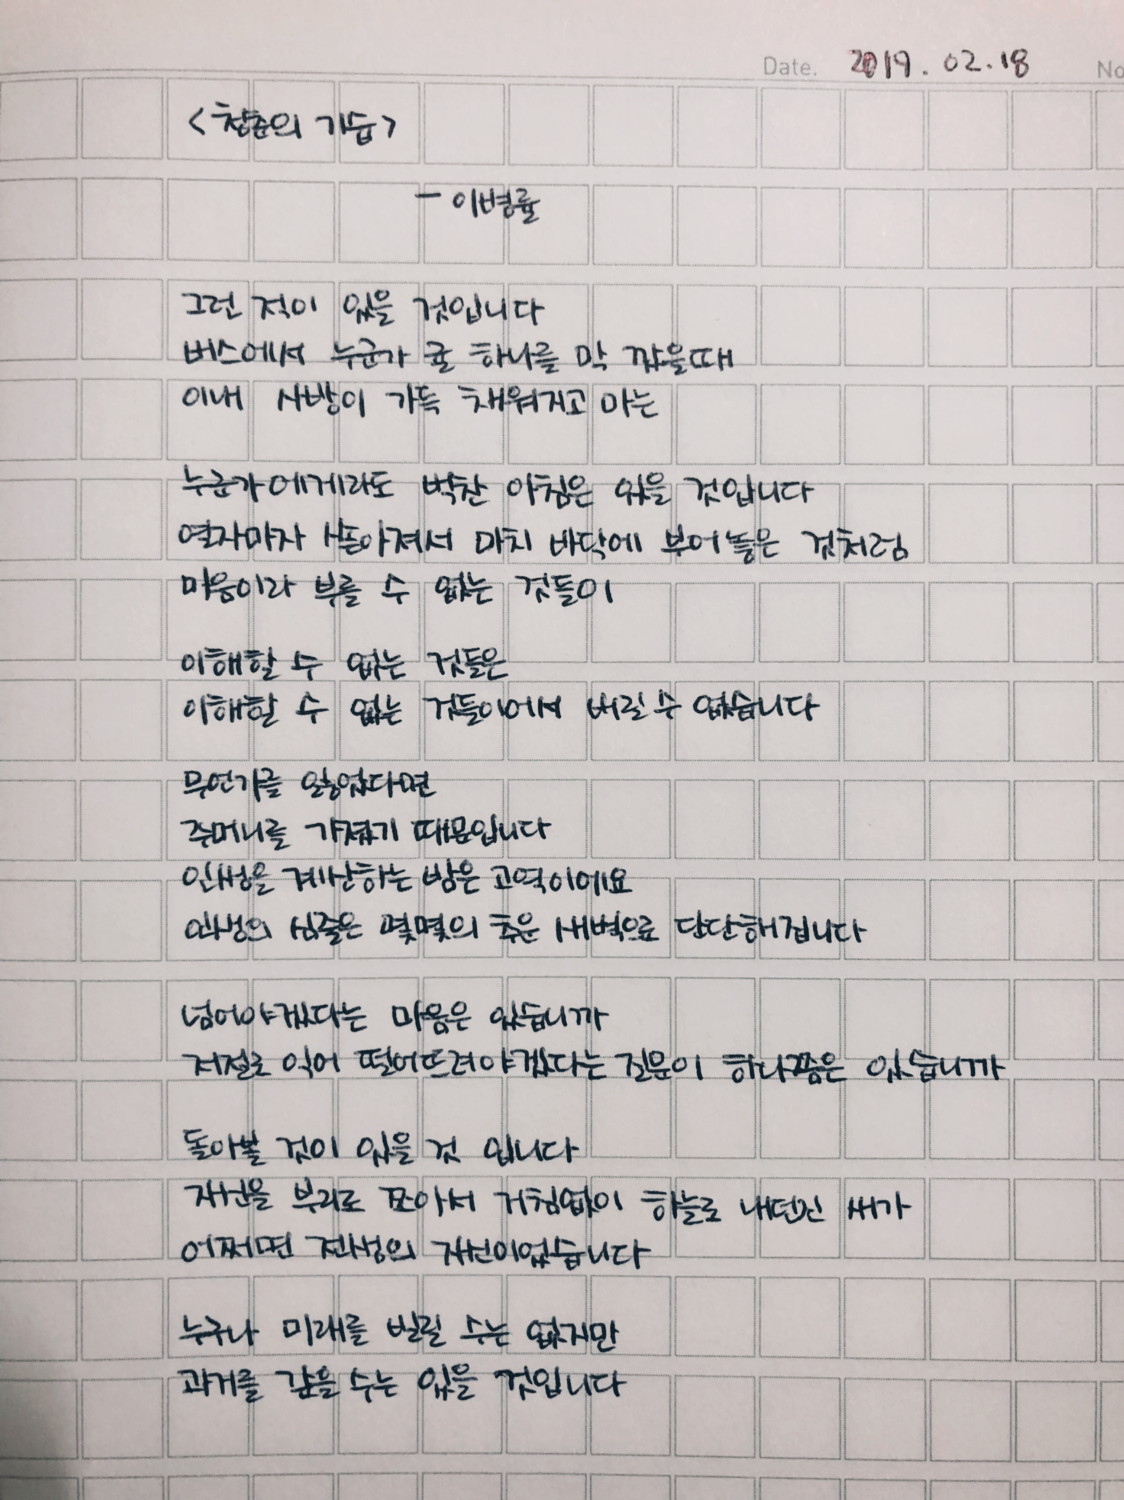 Date. 2019.02.18 No
<청춘의 기습>
- 이병률
그런 적이 있을 것입니다
버스에서 누군가 귤 하나를 막 깠을때
이내 사방이 가득 채워지고 마는
누군가에게라도 벅찬 아침은 있을 것입니다
열자마자 쏟아져서 마치 바닥에 부어놓은 것처럼
마음이라 부를 수 없는 것들이
이해할 수 없는 것들은
이해할 수 없는 것들이어서 버릴 수 없습니다
무언가를 잃었다면
주머니를 가졌기 때문입니다
인생을 계산하는 밤은 고역이에요
인생의 심줄은 몇몇의 추운 새벽으로 단단해집니다
넘어야겠다는 마음은 있습니까
저절로 익어 떨어뜨려야겠다는 질문이 하나쯤은 있습니까
돌아볼 것이 있을 것 입니다
자신을 부리로 쪼아서 거침없이 하늘로 내던진 새가
어쩌면 전생의 자신이었습니다
누구나 미래를 빌릴 수는 없지만
과거를 갚을 수는 있을 것입니다